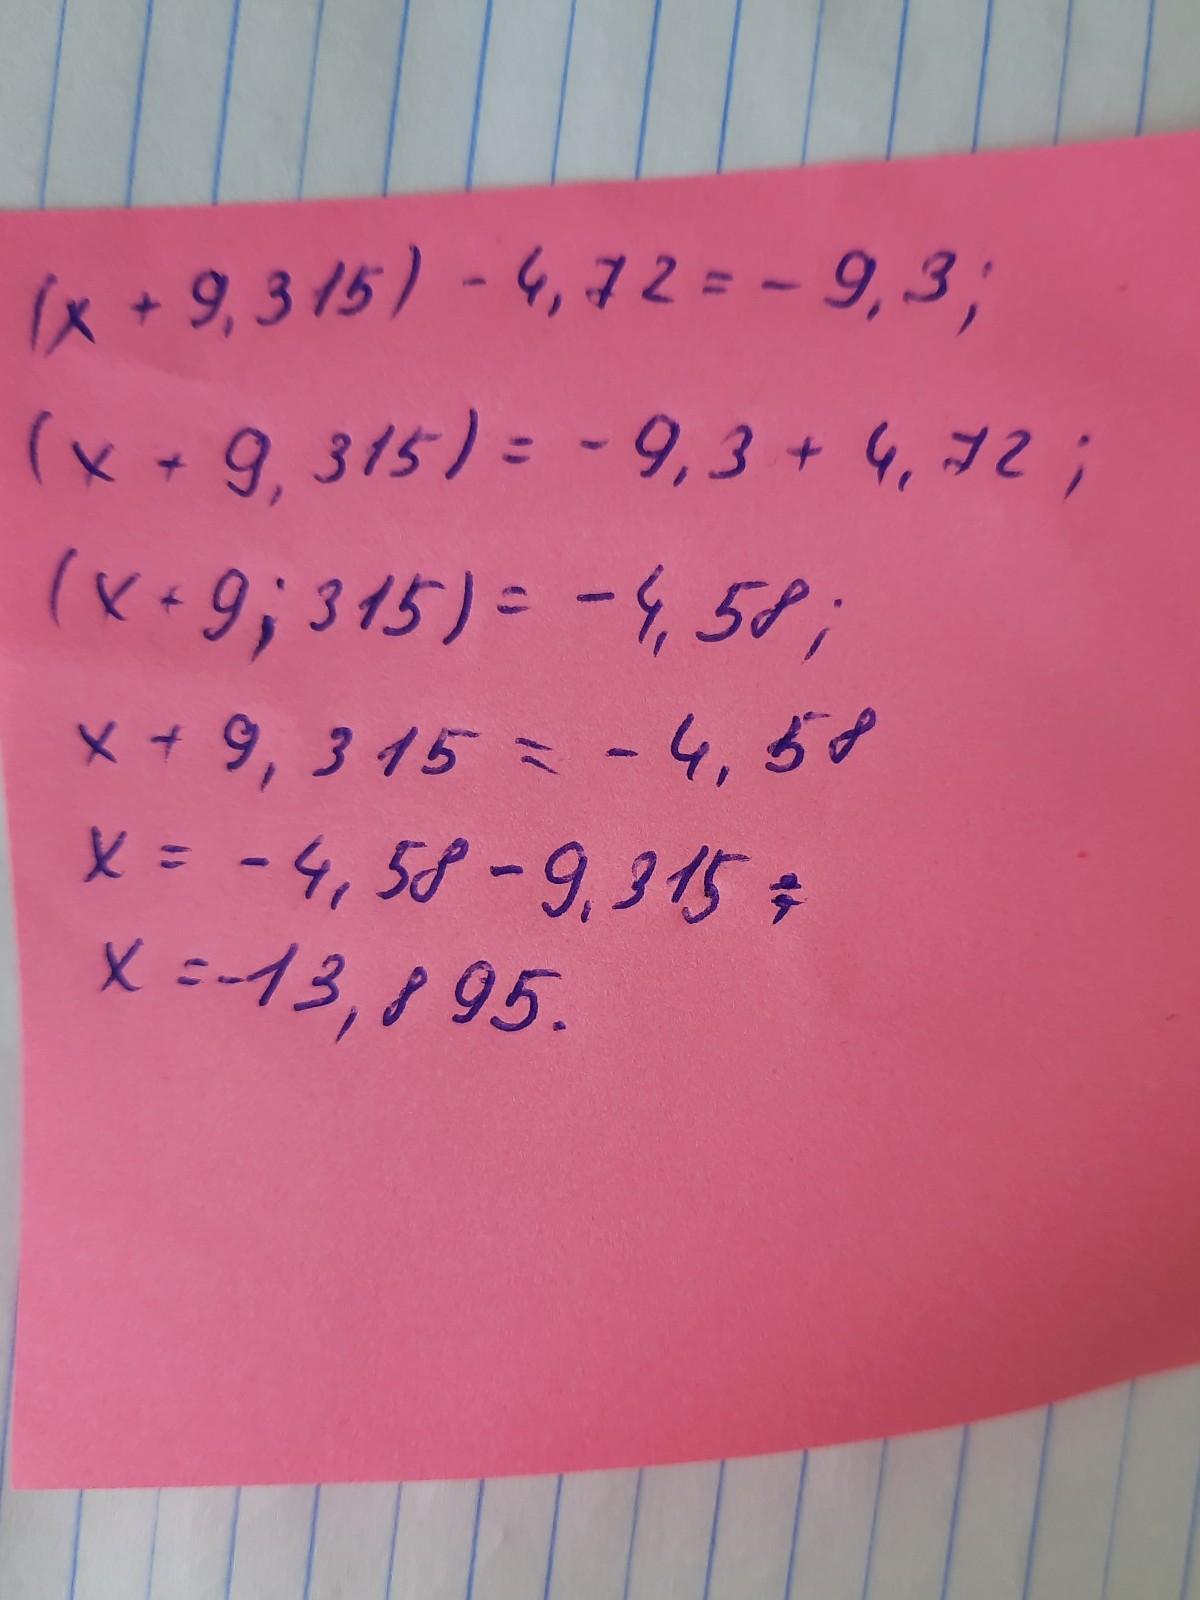 (x + 9,315) - 4,72 = - 9,3;
(x + 9,315) = - 9,3 + 4,72;
(x + 9;315) = - 4,58;
x + 9,315 = - 4,58
x = - 4,58 - 9,315;
x = -13,895.